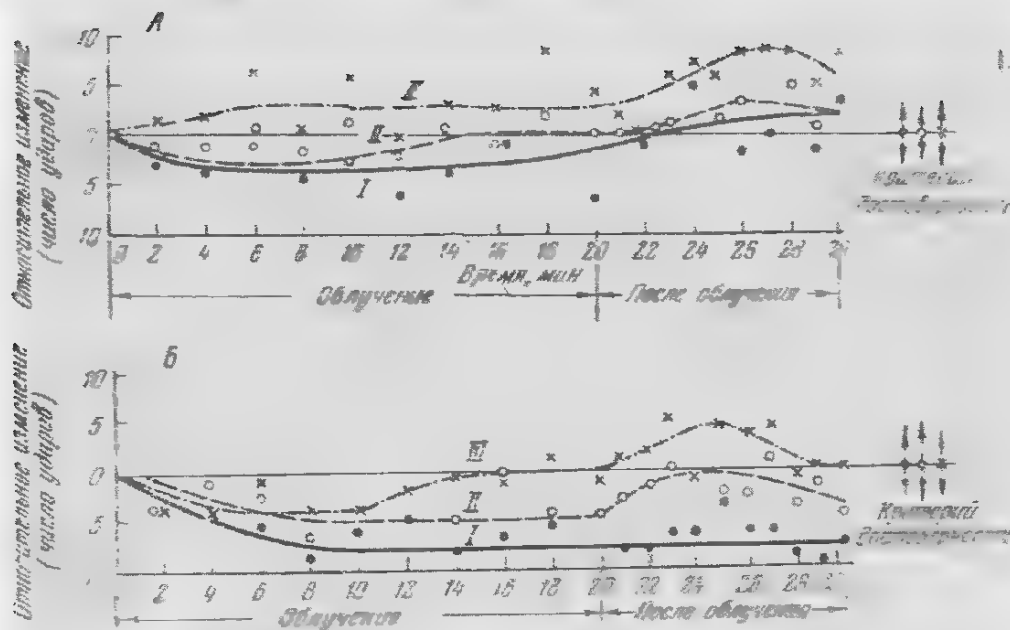 А
Относительное изменение
(число ударов)
10
5
0
5
10
III
II
I
0 2 4 6 8 10 12 14 16 18 20 22 24 26 28 30
Время, мин
Облучение
После облучения
Критерий
Достоверности
Б
Относительное изменение
(число ударов)
10
5
0
5
III
II
I
2 4 6 8 10 12 14 16 18 20 22 24 26 28
Облучение
После облучения
Критерий
Достоверности